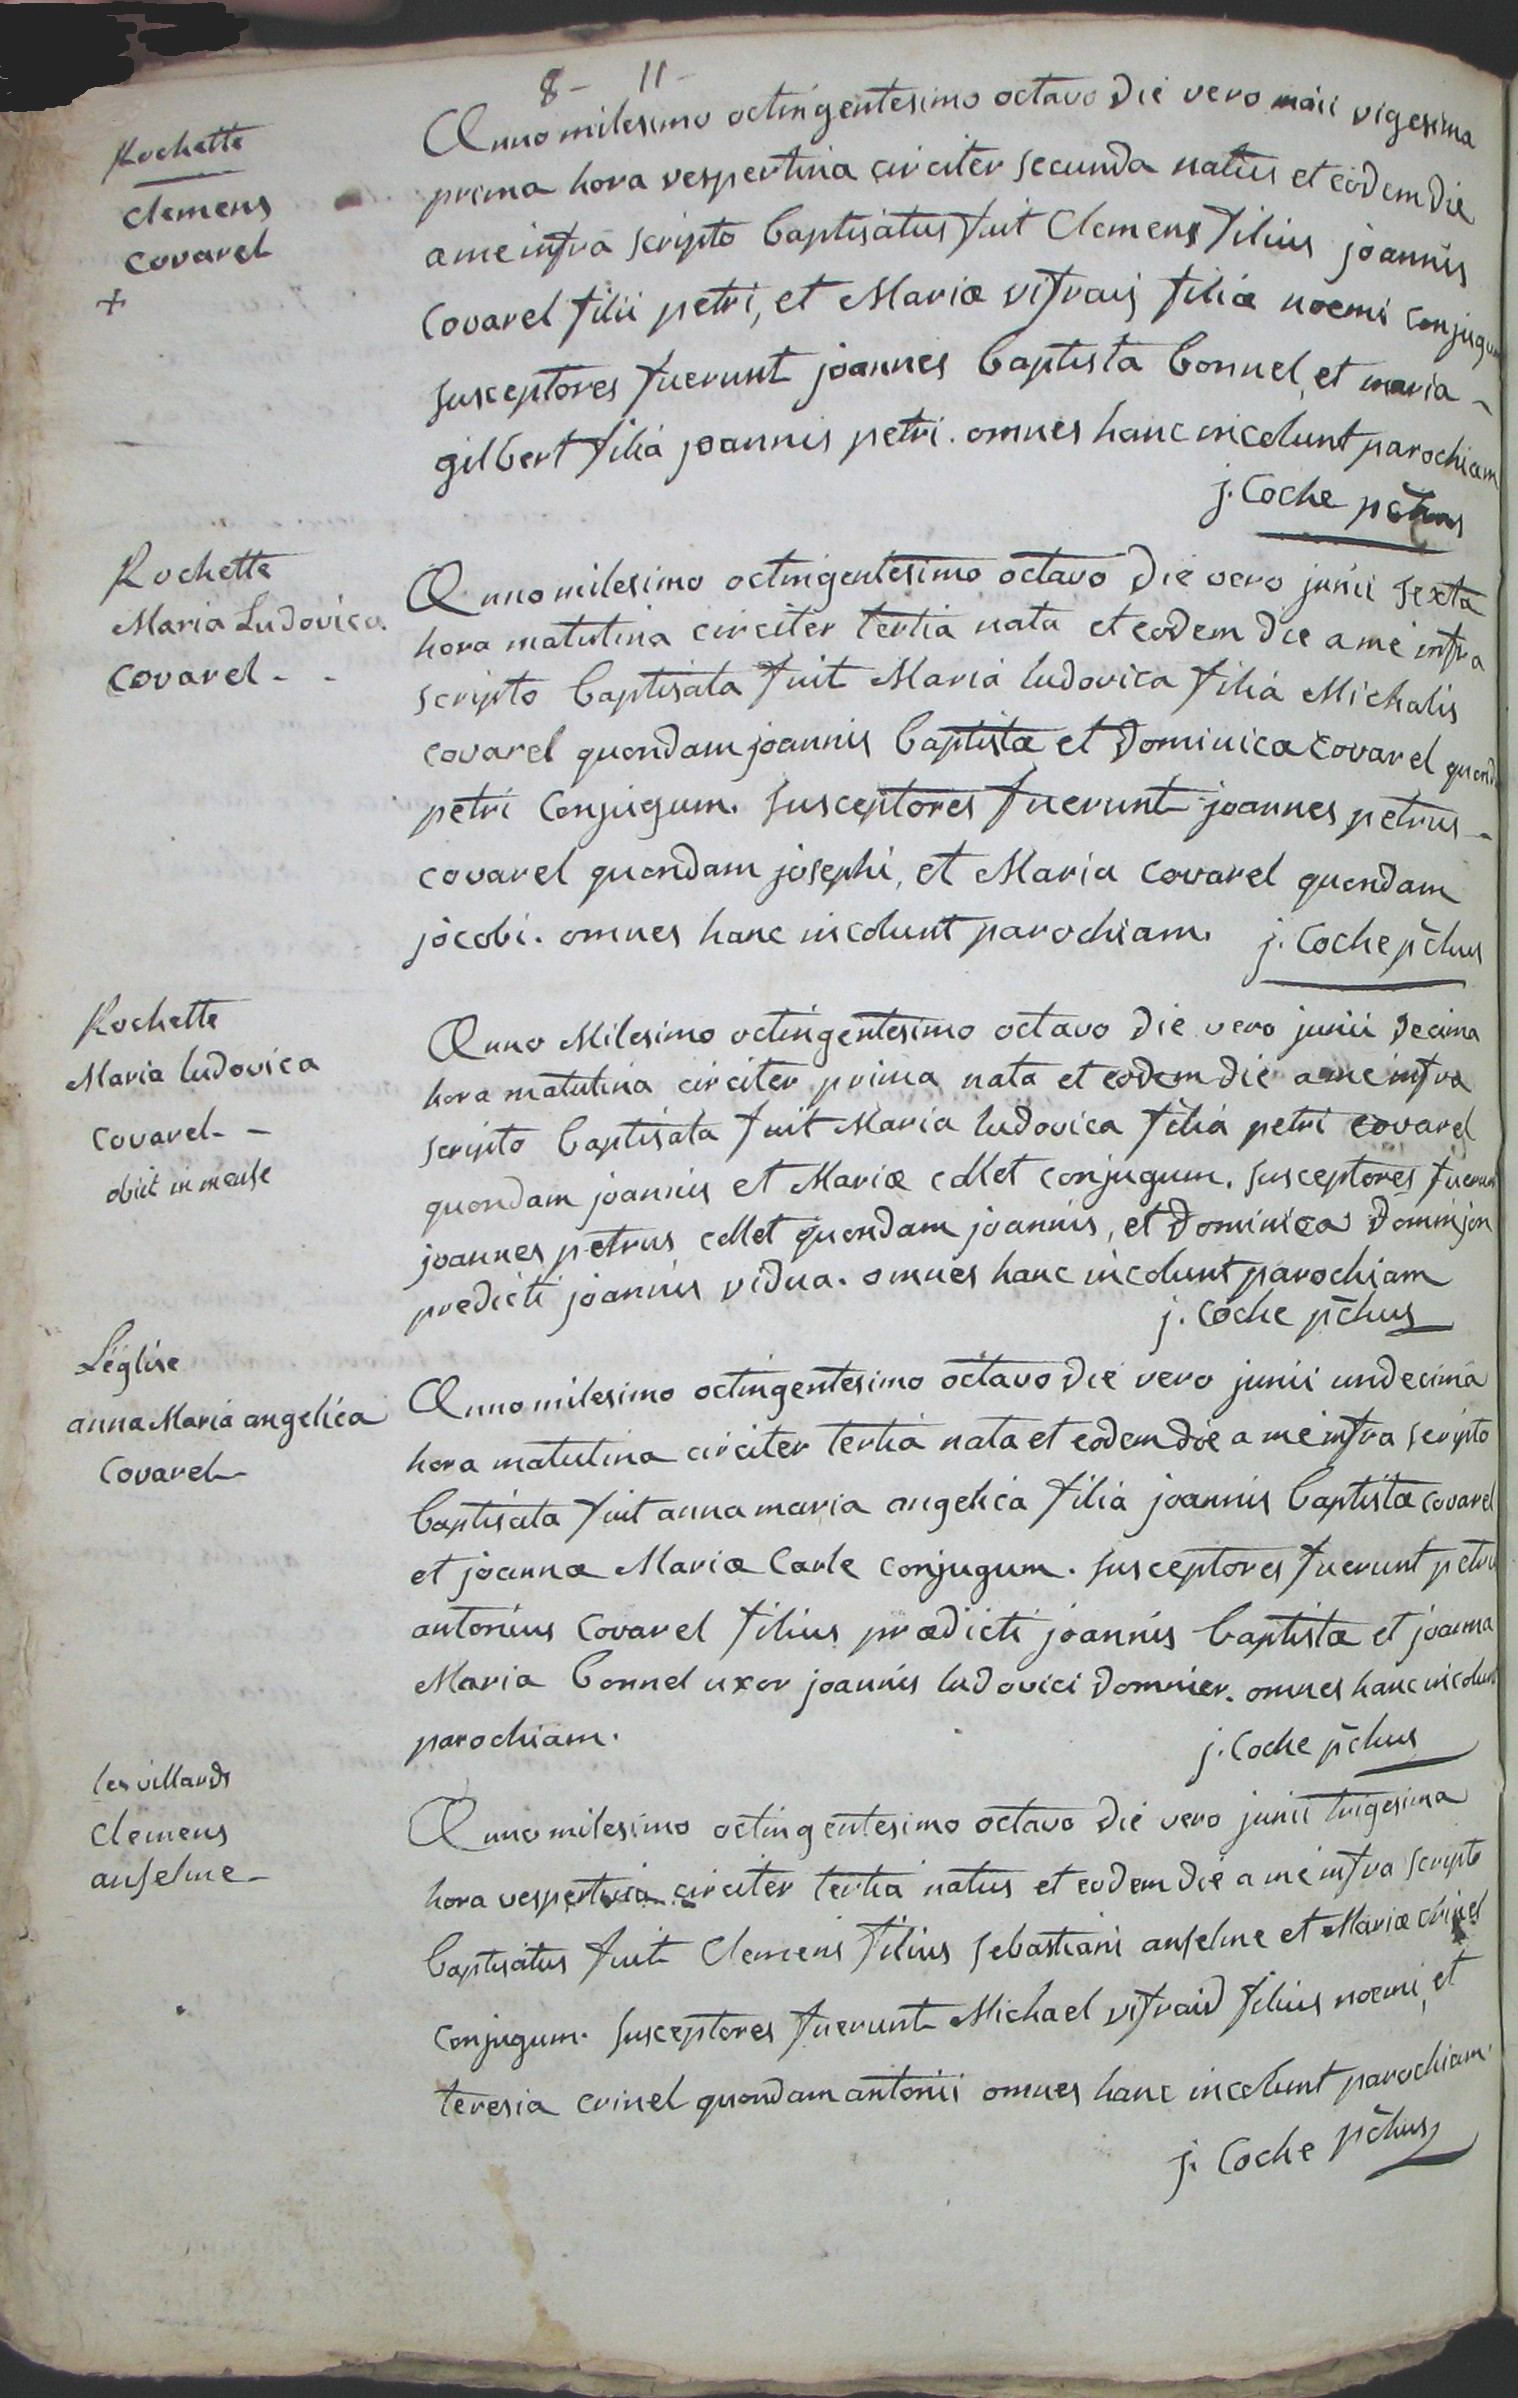 8- 11-
Rochette
clemens
covarel
+
Anno milesimo octingentesimo octavo die vero maii vigesima
prima hora vespertina circiter secunda natus et eodem die
a me infra scripto baptisatus fuit Clemens filius joannis
covarel filii petri, et Mariæ vifrais filiæ noemi conjugum
susceptores fuerunt joannes baptista bonnel, et maria -
gilbert filia joannis petri. omnes hanc incolunt parochiam
j. Coche pchus
Rochette
Maria Ludovica
covarel - -
Anno milesimo octingentesimo octavo die vero junii sexta
hora matutina circiter tertia nata et eodem die a me infra
scripto baptisata fuit Maria ludovica filia Michalis
covarel quondam joannis baptistæ et Dominicæ covarel quond
petri conjugum. susceptores fuerunt joannes petrus -
covarel quondam josephi, et Maria covarel quondam
jocobi. omnes hanc incolunt parochiam. j. Coche pchus
Rochette
Maria ludovica
covarel - -
obiit in mense
Anno Milesimo octingentesimo octavo die vero junii decima
hora matutina circiter prima nata et eodem die a me infra
scripto baptisata fuit Maria ludovica filia petri covarel
quondam joannis et Mariæ collet conjugum. susceptores fuerun
joannes petrus collet quondam joannis, et Dominica Dominjon
predicti joannis vidua. omnes hanc incolunt parochiam
j. Coche pchus
L'église
anna Maria angelica
covarel
Anno milesimo octingentesimo octavo die vero junii undecima
hora matutina circiter tertia nata et eodem die a me infra scripto
baptisata fuit anna maria angelica filia joannis baptistæ covarel
et joannæ Mariæ Carle conjugum. susceptores fuerunt petru
antonius covarel filius prædicti joannis baptistæ et joanna
Maria bonnel uxor joannis ludovici Domnier. omnes hanc incolun
parochiam. j. Coche pchus
les villards
Clemens
anselme -
Anno milesimo octingentesimo octavo die vero junii trigesima
hora vespertina circiter tertia natus et eodem die a me infra scripto
baptisatus fuit Clemens filius sebastiani anselme et Mariæ crinel
conjugum. susceptores fuerunt Michael vifraid filius noemi, et
teresia crinel quondam antonii omnes hanc incolunt parochiam.
j. Coche pchus